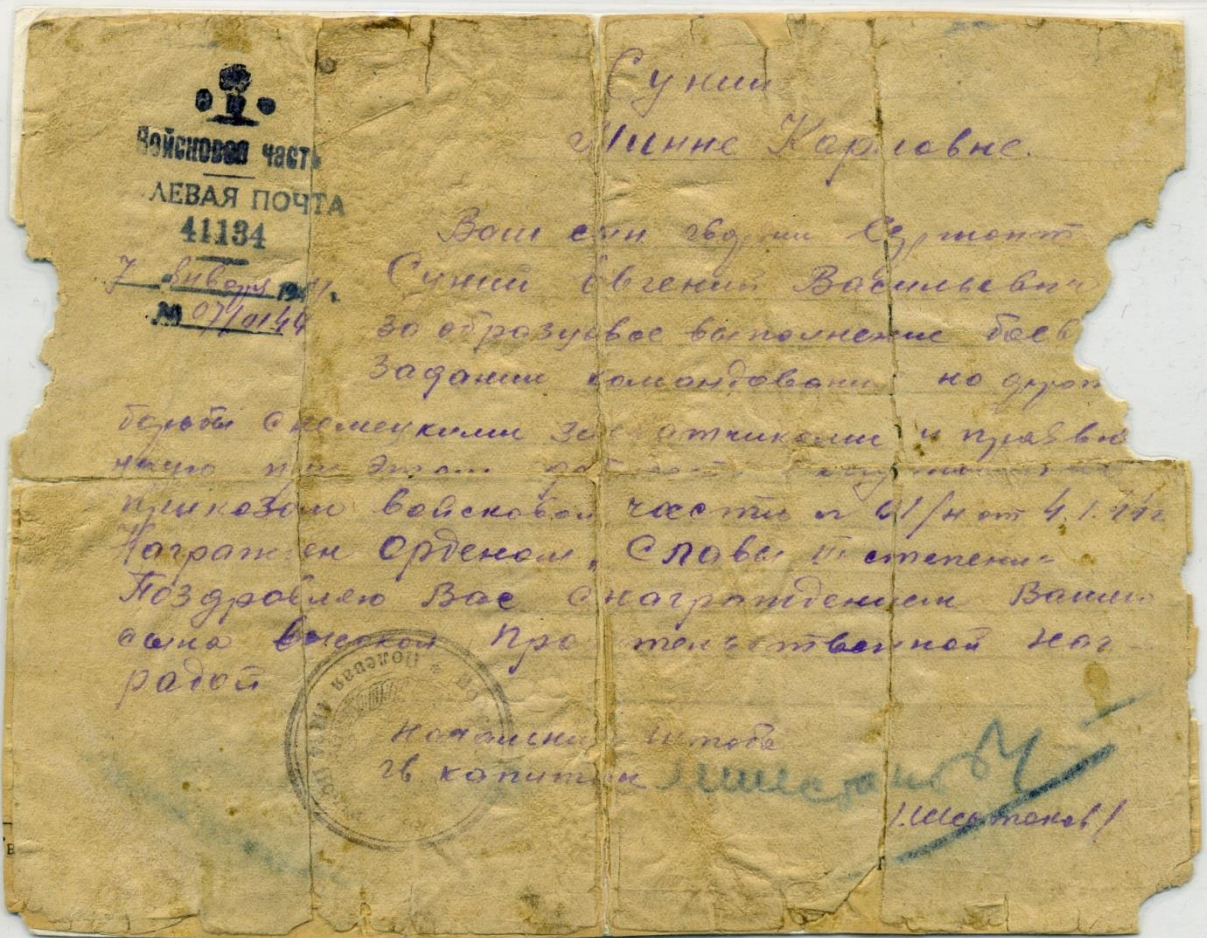 Н К О
Войсковая часть
ЛЕВАЯ ПОЧТА
41134
7 января 1944 г.
№ 07/0144
Суний
Минне Карловне.
Ваш сын гвардии Сержант
Суний Евгений Васильевич
за образцовое выполнение боев
заданий командования на фронт
борьбы с немецкими захватчиками и проявлен
ную при этом
приказом войсковой части № 01/н от 4.1.44 г
Награжден Орденом "Славы III степени"
Поздравляю Вас с награждением Вашего
сына высокой Правительственной наг-
радой
Начальник штаба
гв капитан
/Шестаков/
Полевая